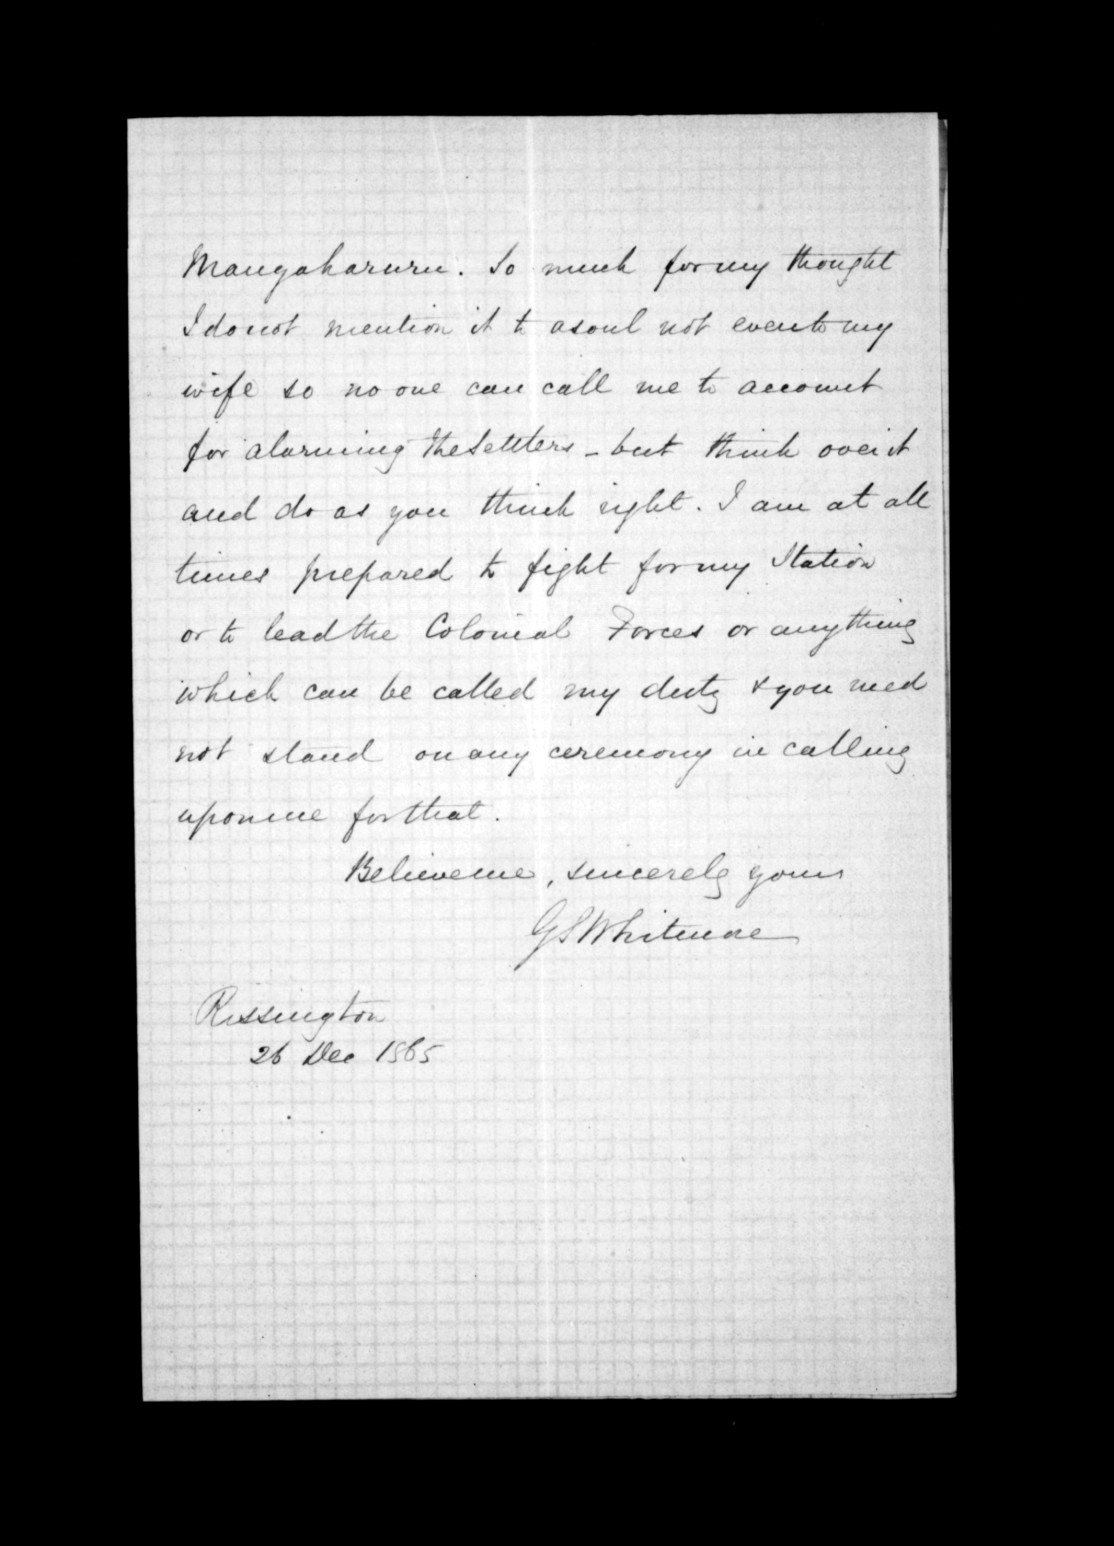 Maungaharuru. So much for my thought
I do not mention it to a soul not even to my
wife so no one can call me to account
for alarming the Settlers – but think over it
and do as you think right. I am at all
times prepared to fight for my Station
or to lead the Colonial Forces or anything
which can be called my duty & you need
not stand on any ceremony in calling
upon me for that.
Believe me, sincerely yours
GSWhitmore
Rissington
26 Dec 1865